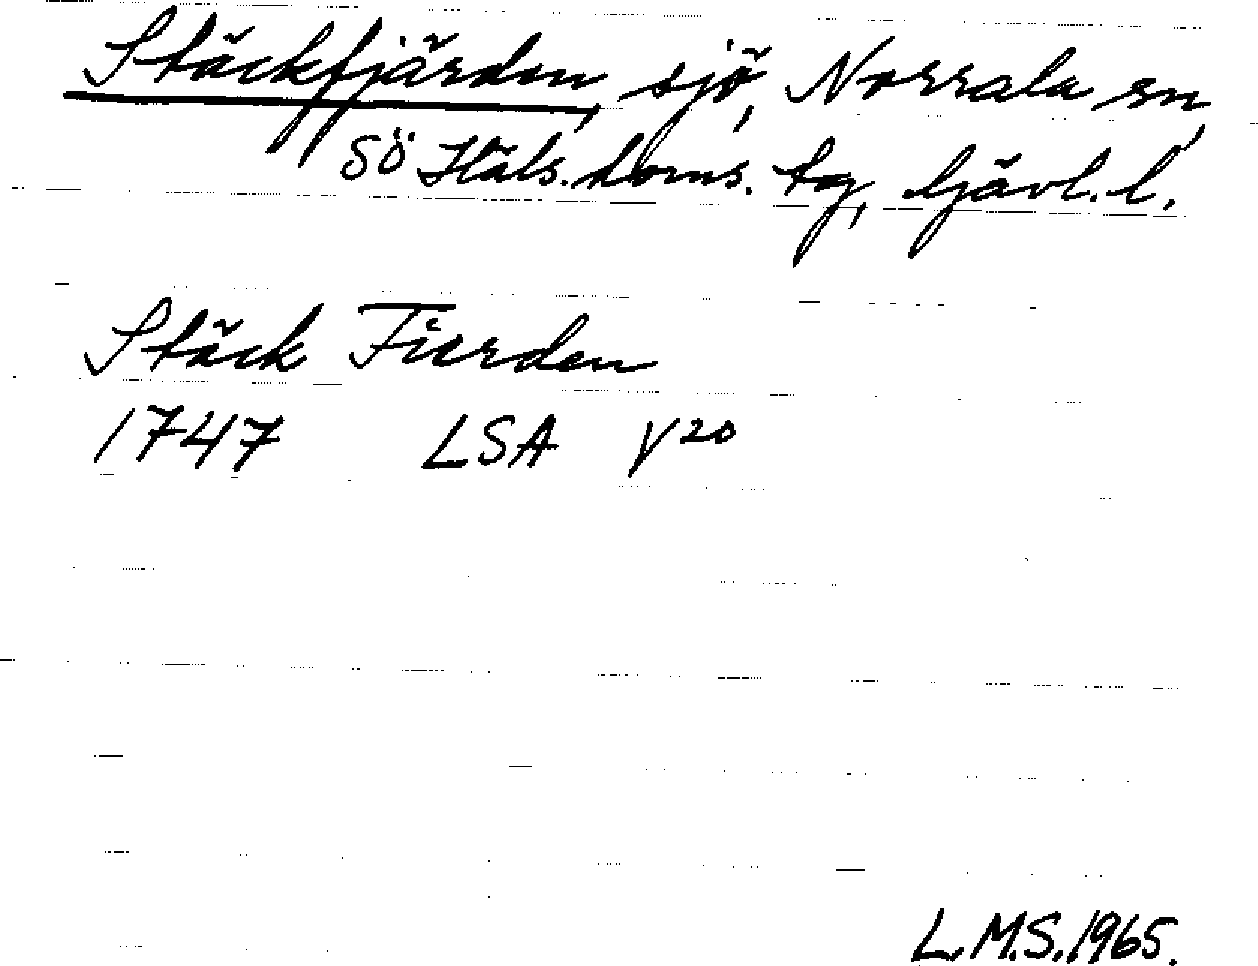 Stäckfjärden, sjö, Norrala sn,
SÖ Häls. doms. tg, Gävl. l.
Stäck Fierden
1747 LSA V20
L.M.S.1965.